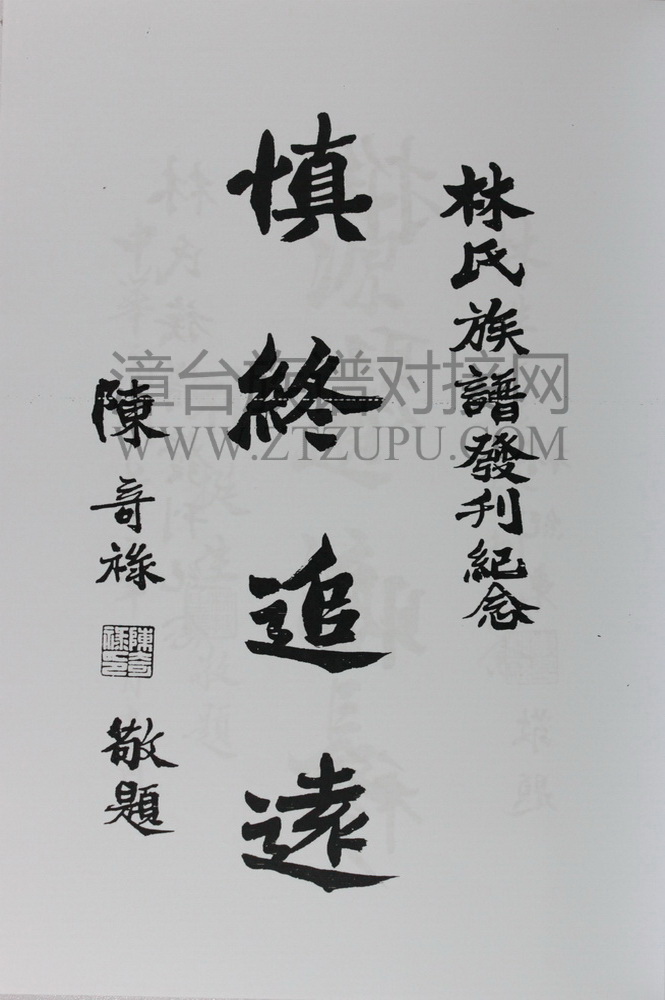 林氏族譜發刊紀念
慎終追遠
陳奇祿
敬題
漳台族谱对接网
WWW.ZTZUPU.COM